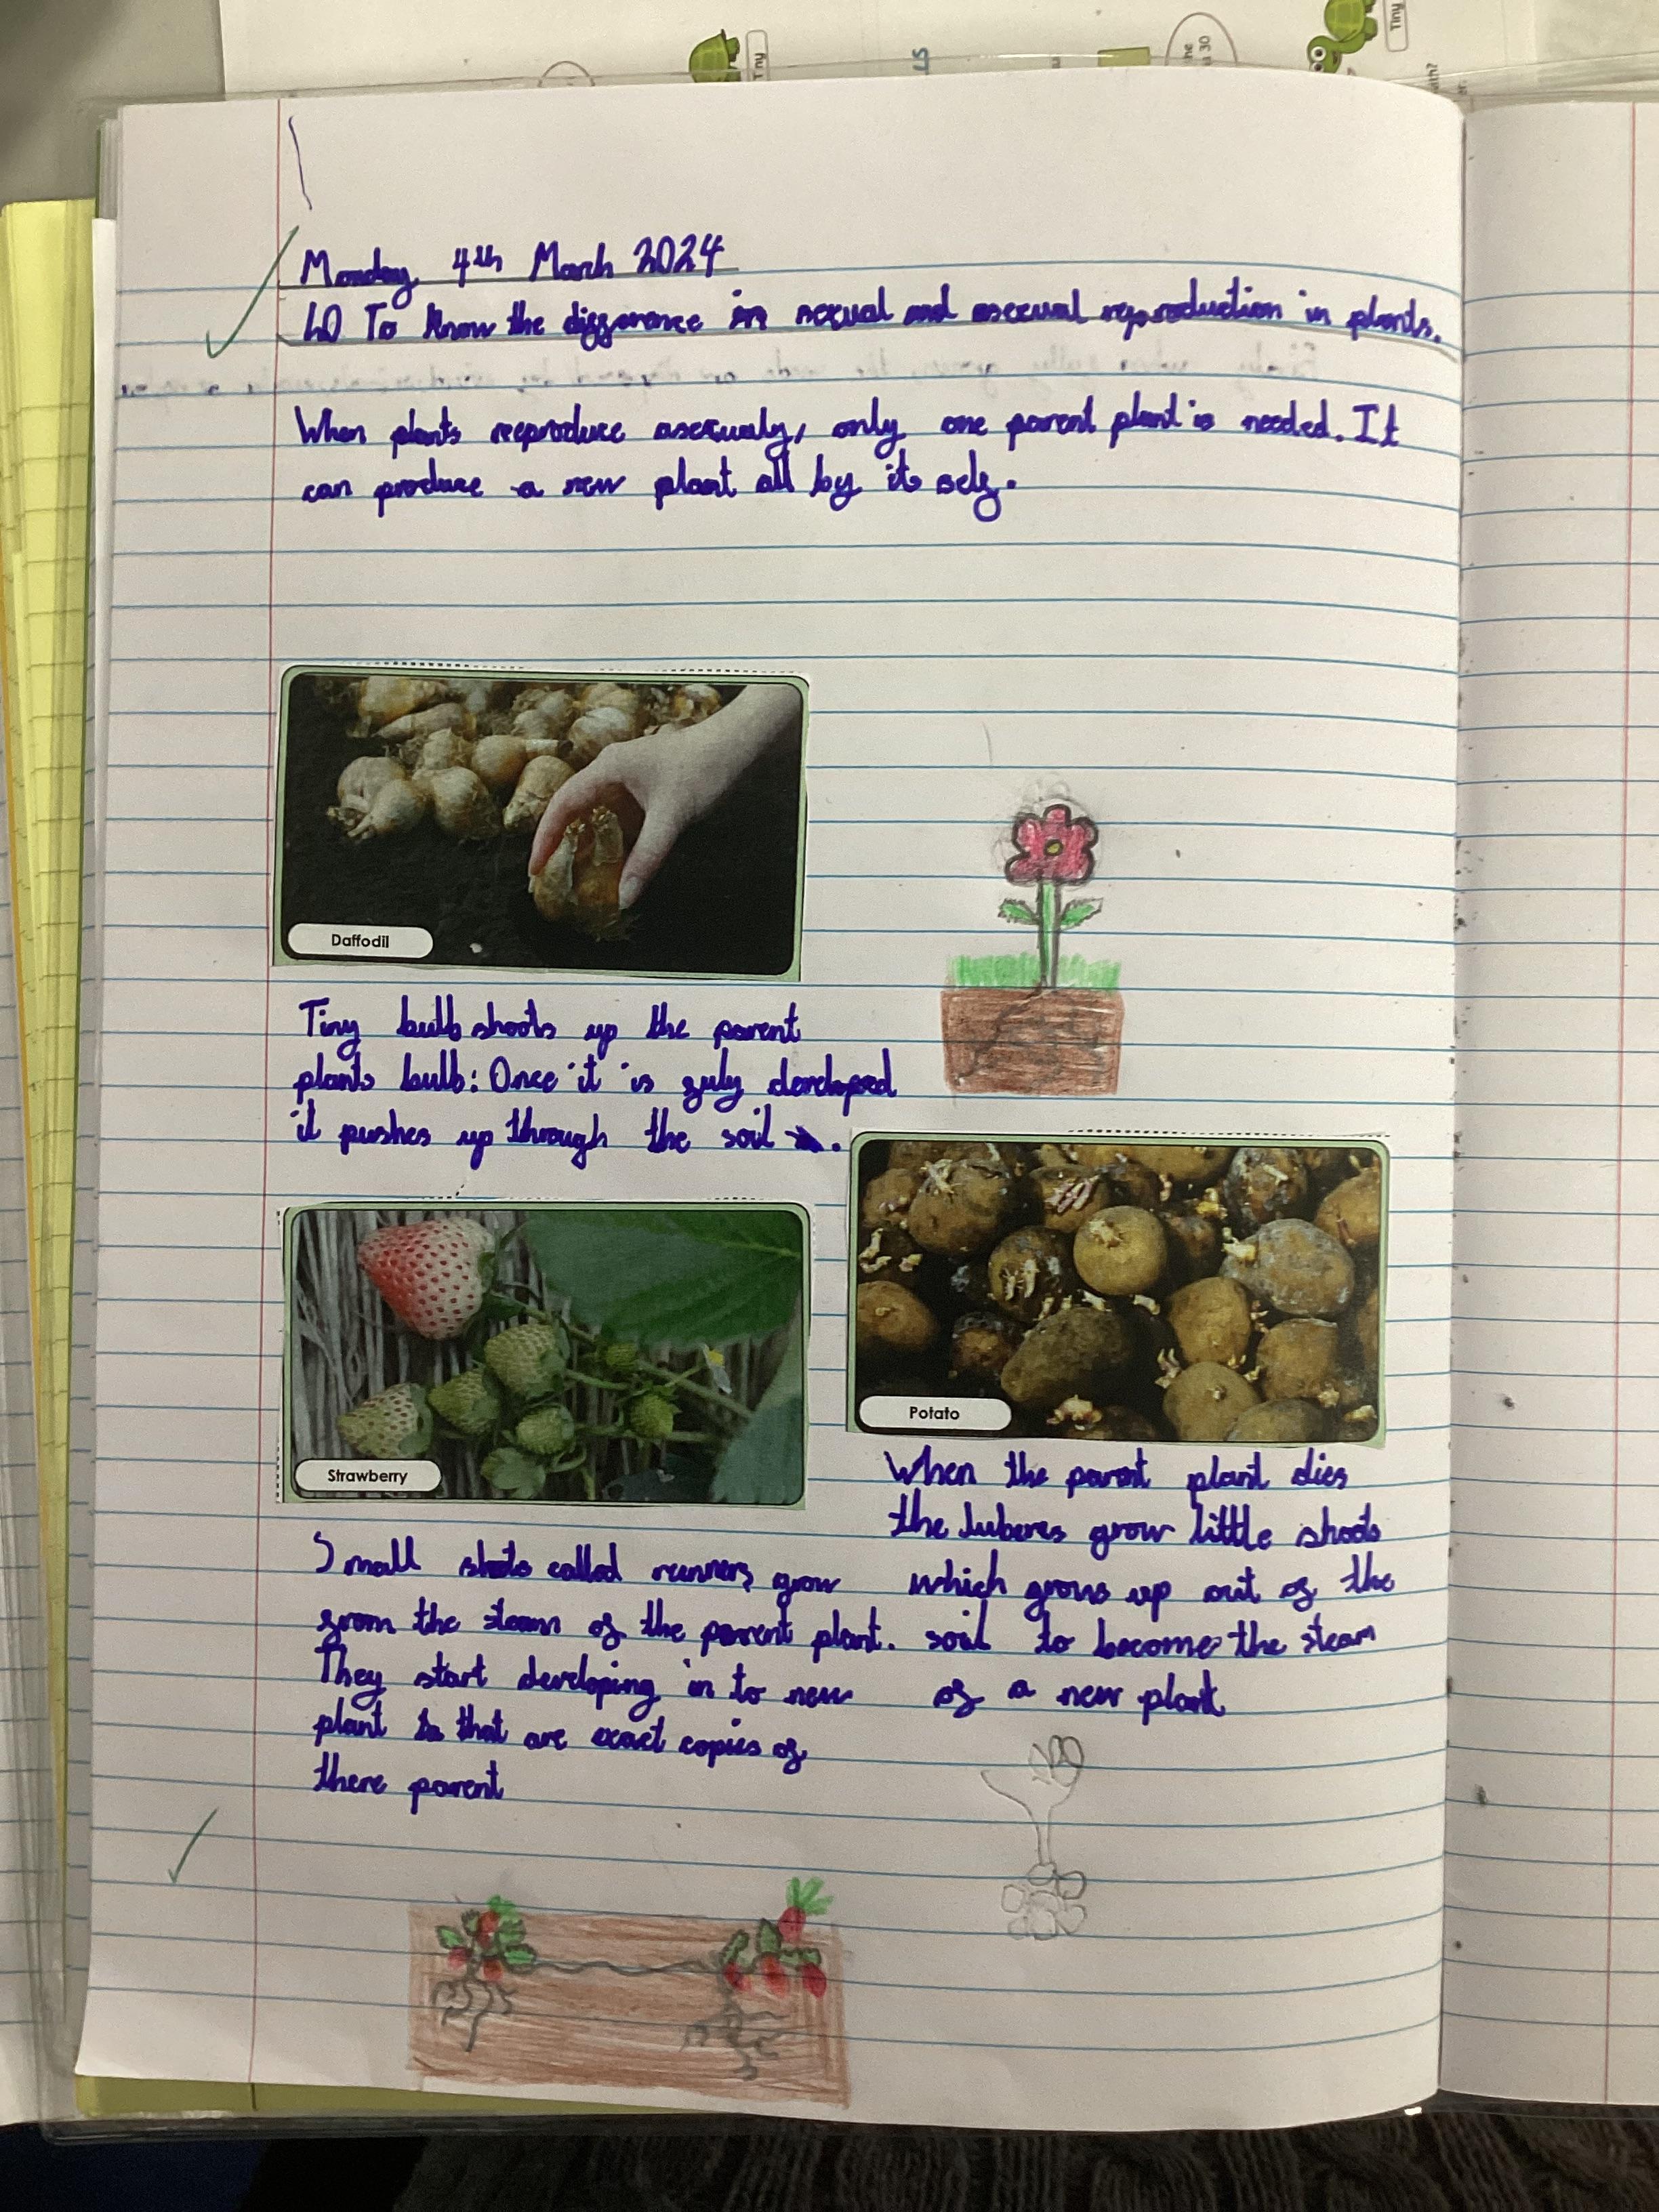 Tiny
ne
u 30
Tiny
Monday 4th March 2024
LO To know the difference in sexual and asexual reproduction in plants.
When plants reproduce asexualy, only one parent plant is needed. It
can produce a new plant all by its self.
Daffodil
Tiny bulb shoots up the parent
plants bulb: Once it is fuly developed
it pushes up through the soil .
Strawberry
Small shoots called runners grow
from the steam of the parent plant.
They start developing in to new
plant that are exact copies of
there parent
Potato
When the parent plant dies
the tuberes grow little shoots
which grows up out of the
soil to become the steam
of a new plant